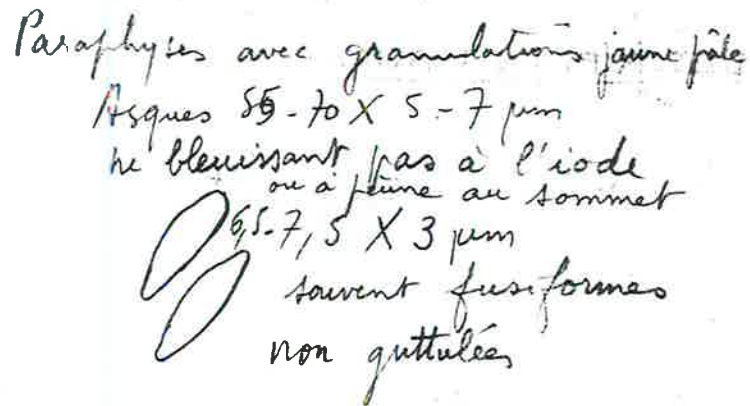 Paraphyses avec granulations jaune pâle
Asques 55-70 X 5-7 µm
ne bleuissant pas à l'iode
ou à peine au sommet
6,5-7,5 X 3 µm
souvent fusiformes
non guttulées